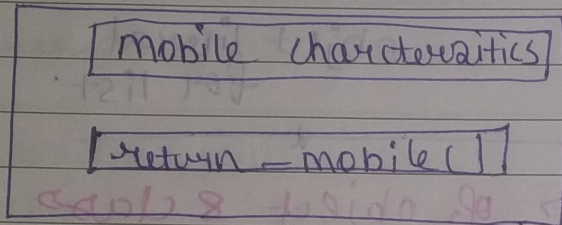 mobile charcteraitics
return - mobile()